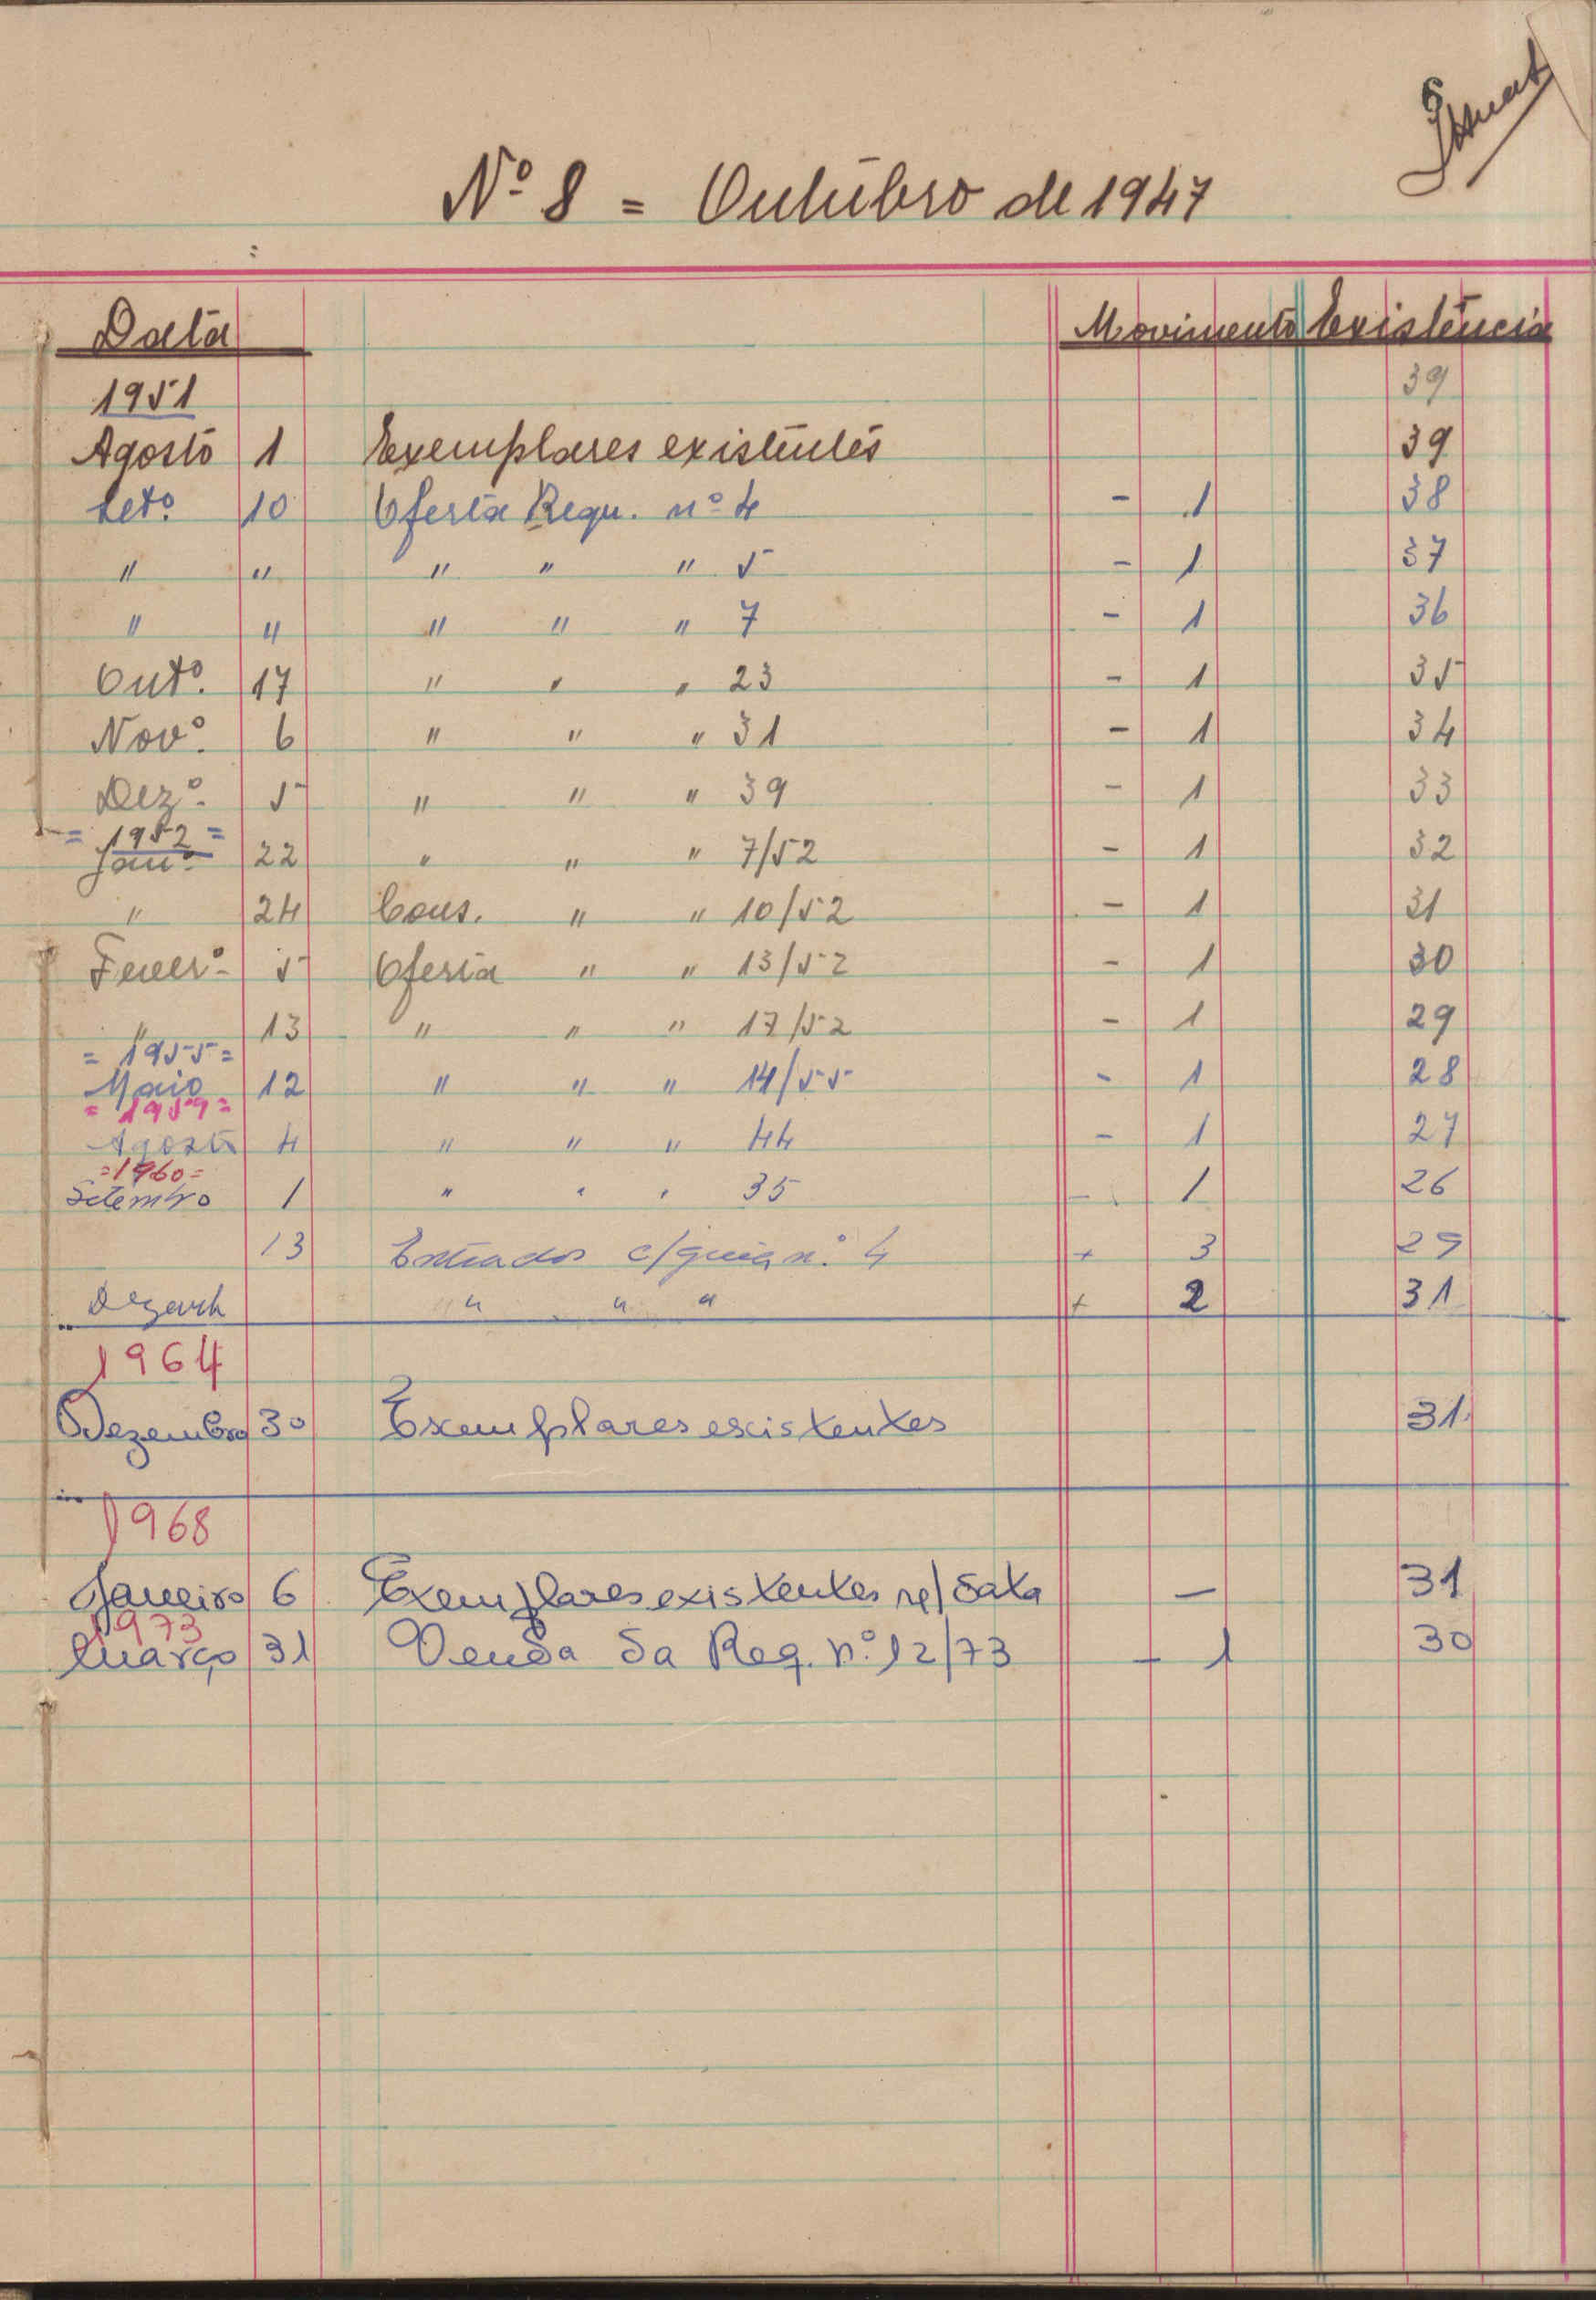 6
Nº 8 = Outúbro de 1947
Data Movimento Existência
1951 39
Agosto 1 Exemplares existentes 39
Setº. 10 Oferta Requ. nº 4 - 1 38
" " " " " 5 - 1 37
" " " " " 7 - 1 36
Outº. 17 " " " 23 - 1 35
Novº. 6 " " " 31 - 1 34
Dezº. 5 " " " 39 - 1 33
= 1952 =
Janº. 22 " " " 7/52 - 1 32
" 24 Cons. " " 10/52 - 1 31
Feverº. 5 Oferta " " 13/52 - 1 30
" 13 " " " 17/52 - 1 29
= 1955 =
Maio 12 " " " 14/55 - 1 28
= 1959 =
Agosto 4 " " " 44 - 1 27
=1960=
Setembro 1 " " " 35 - 1 26
13 Entrados c/guia n.º 4 + 3 29
" " " + 2 31
1964
Dezembro 30 Exemplares existentes 31
1968
Janeiro 6 Exemplares existentes n/data - 31
1973
Março 31 Venda da Req. nº 12/73 - 1 30